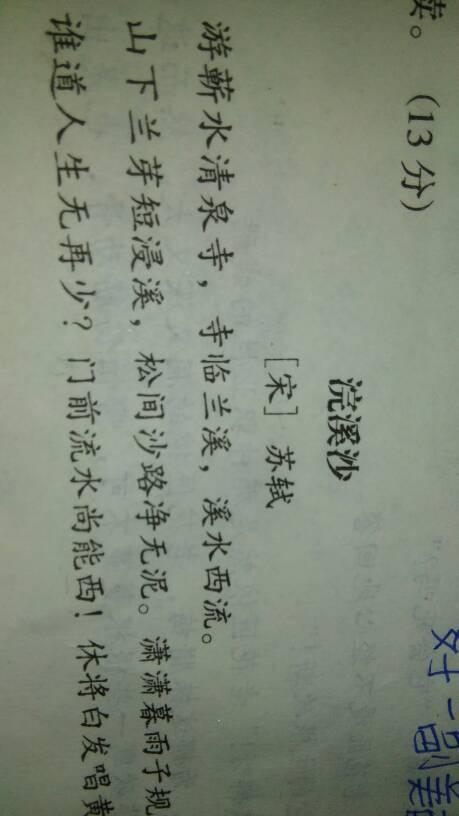 。 (13 分)
对一副
浣溪沙
[宋] 苏轼
游蕲水清泉寺，寺临兰溪，溪水西流。
山下兰芽短浸溪，松间沙路净无泥。潇潇暮雨子规
谁道人生无再少？门前流水尚能西！休将白发唱黄